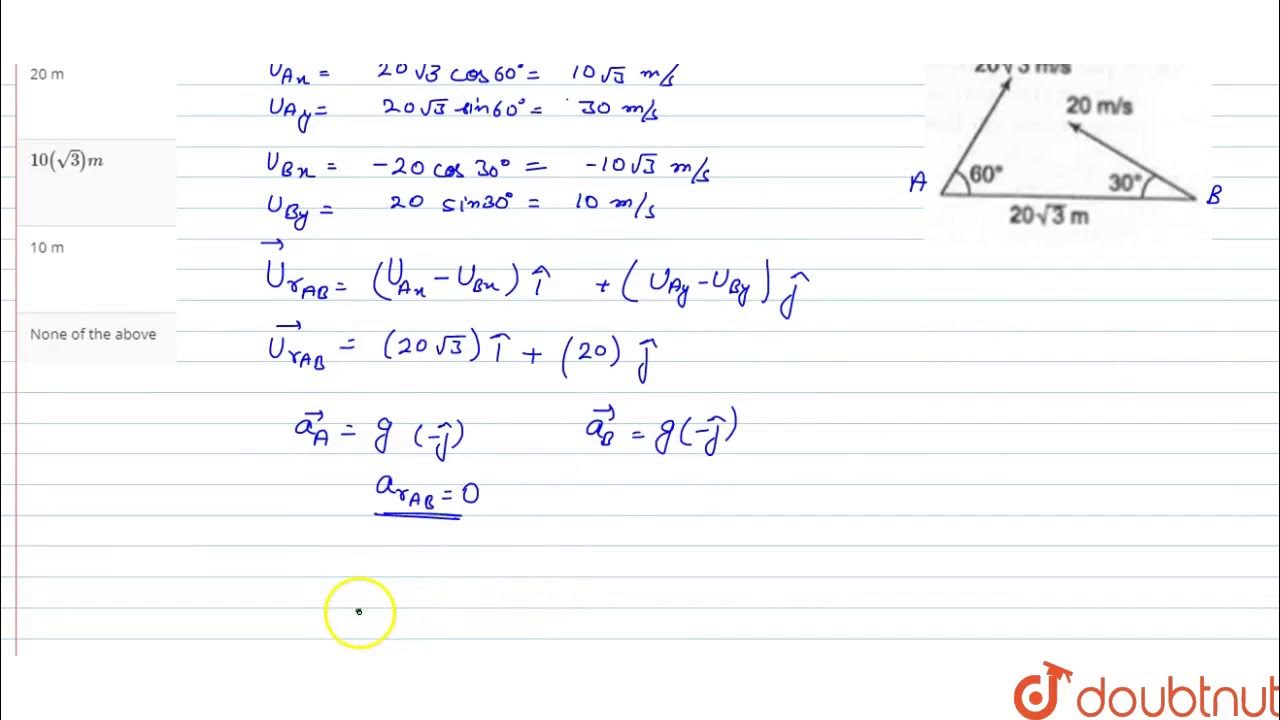 20 m
10(√3)m
10 m
None of the above
U_Ax = 20√3 cos60° = 10√3 m/s
U_Ay = 20√3 sin60° = 30 m/s
U_Bx = -20 cos 30° = -10√3 m/s
U_By = 20 sin30° = 10 m/s
U⃗_rAB = (U_Ax - U_Bx) î + (U_Ay - U_By) ĵ
U⃗_rAB = (20√3) î + (20) ĵ
a⃗_A = g (-ĵ) a⃗_B = g(-ĵ)
a_rAB = 0
20√3 m/s
20 m/s
A 60° 30° B
20√3 m
doubtnut